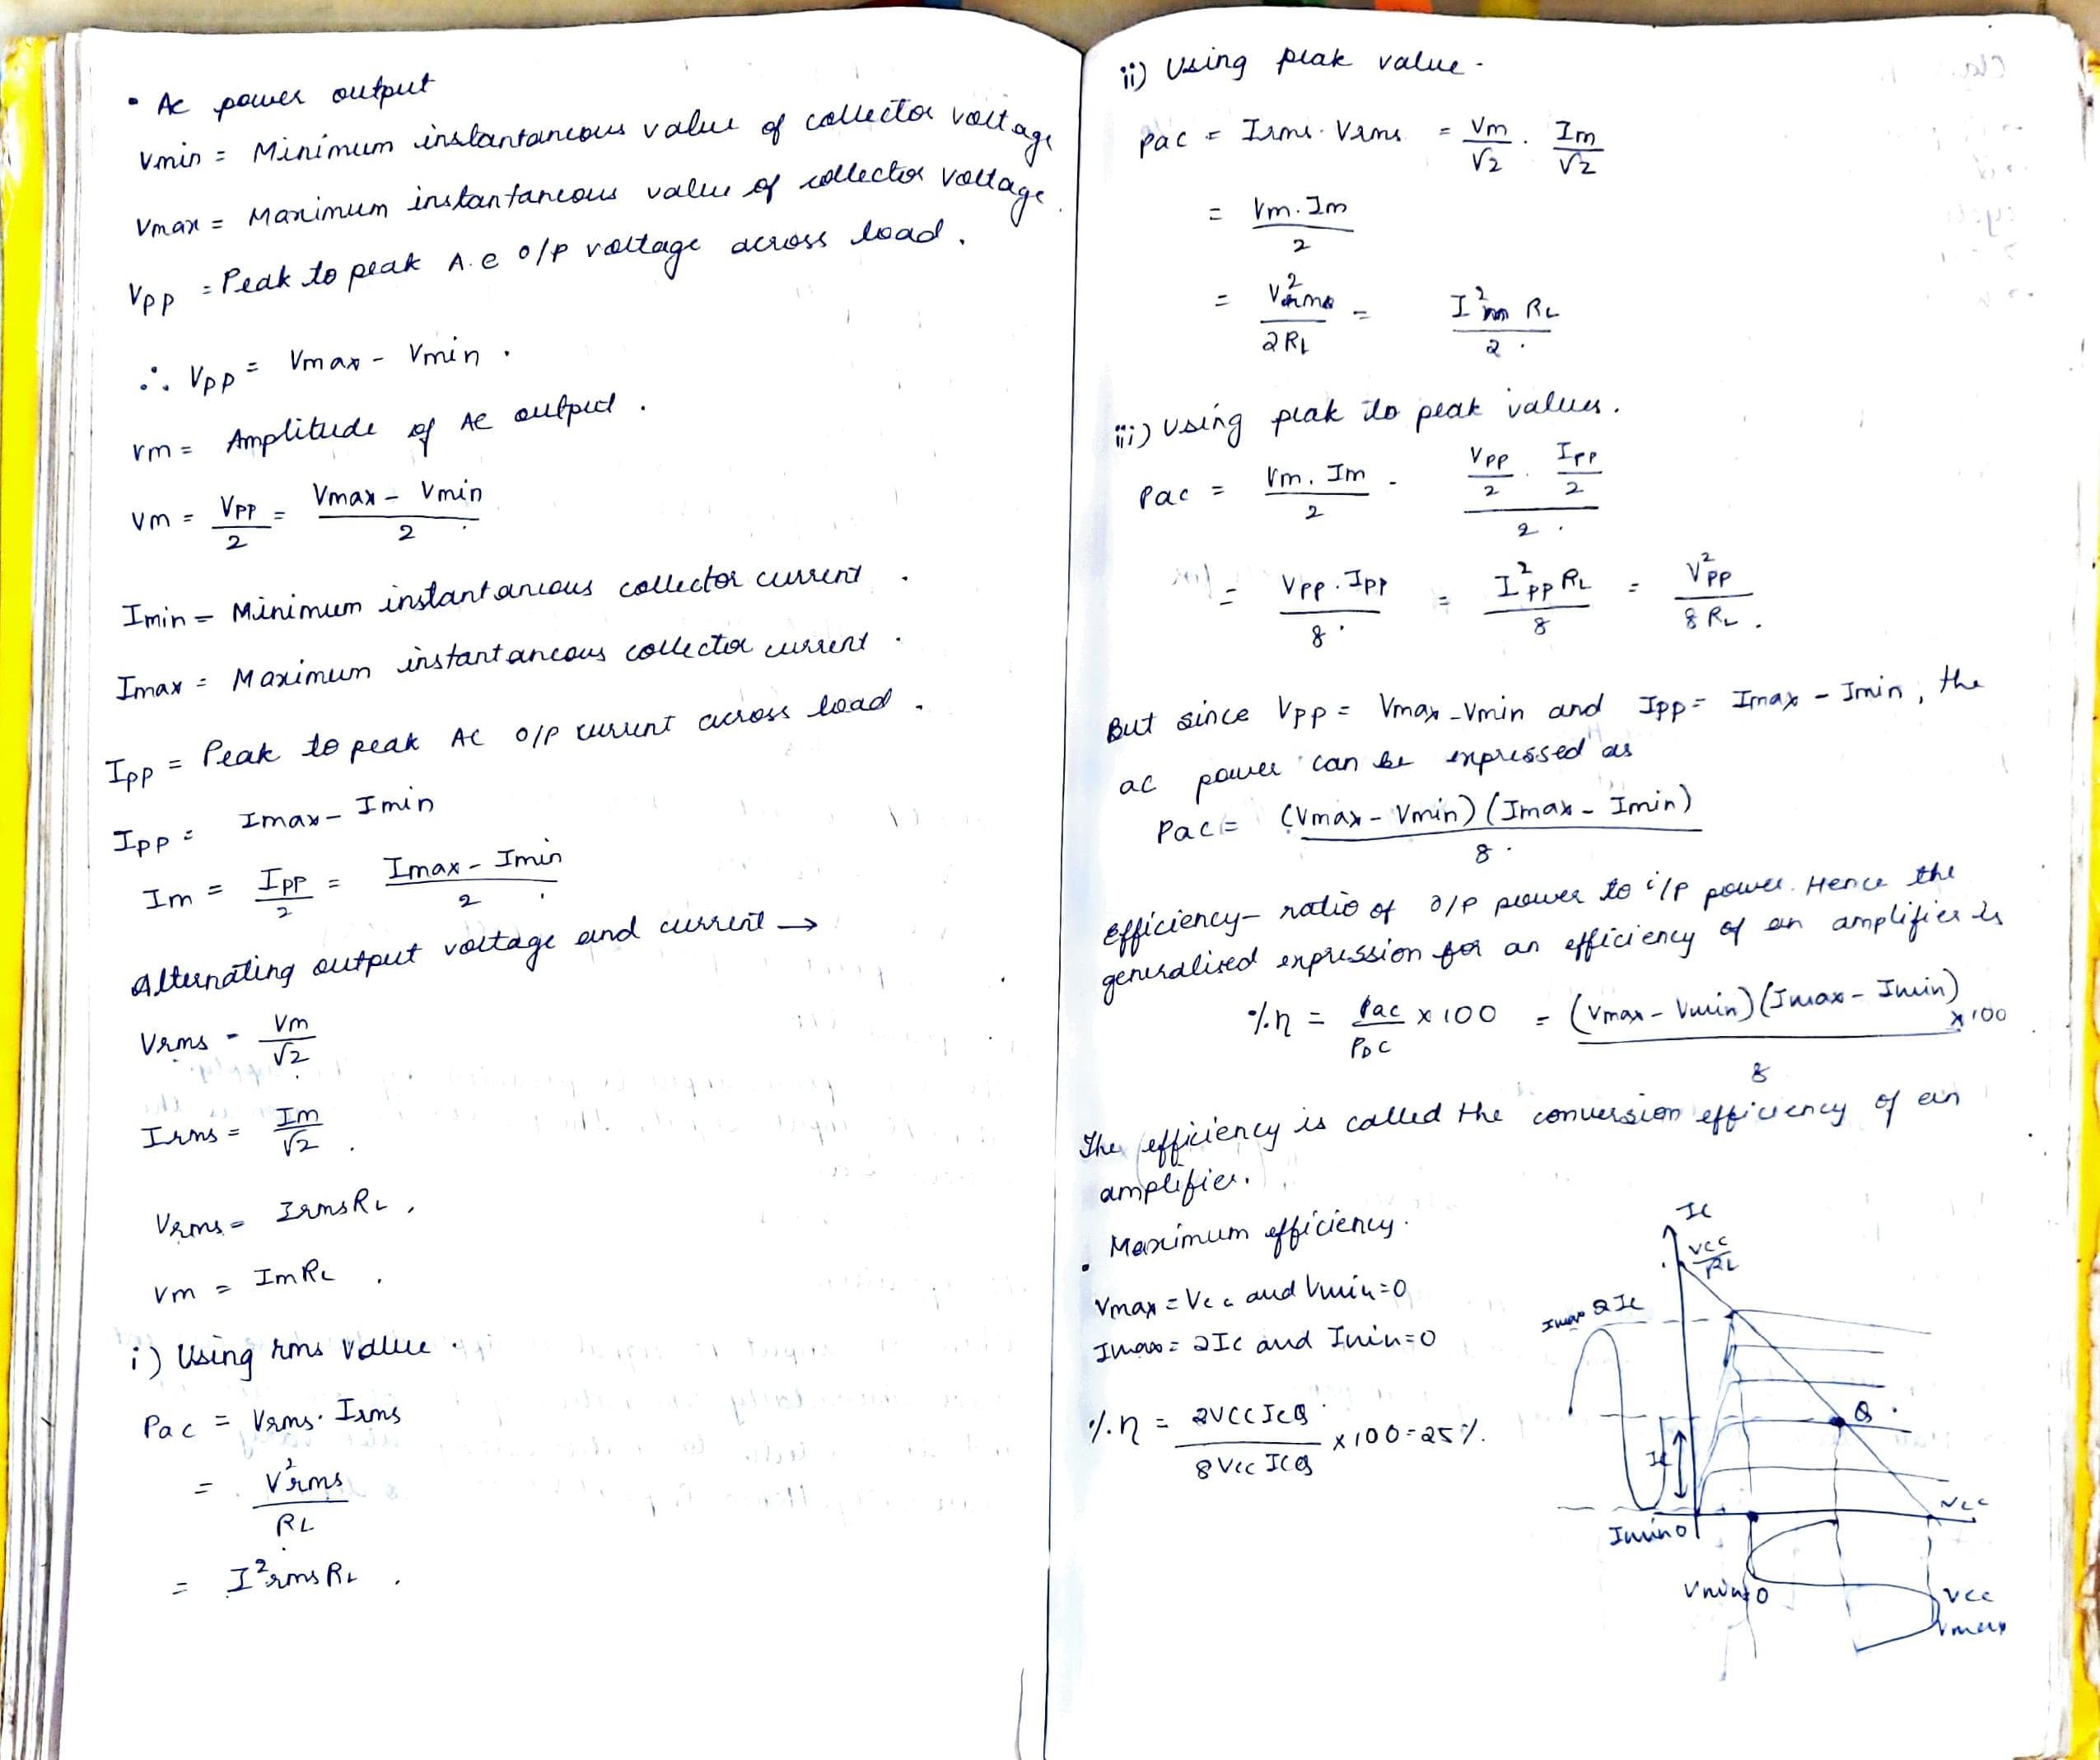 • Ac power output
Vmin = Minimum instantaneous value of collector voltage
Vmax = Maximum instantaneous value of collector voltage.
Vpp = Peak to peak A.c o/p voltage across load.
∴ Vpp = Vmax - Vmin.
Vm = Amplitude of AC output.
Vm = Vpp/2 = (Vmax - Vmin)/2
Imin = Minimum instantanious collector current.
Imax = Maximum instantaneous collector current.
Ipp = Peak to peak AC o/p current across load.
Ipp = Imax - Imin
Im = Ipp/2 = (Imax - Imin)/2
Alternating output voltage and current →
Vrms = Vm/√2
Irms = Im/√2.
Vrms = IrmsRL.
Vm = ImRL.
i) Using rms value.
Pac = Vrms. Irms
= V²rms/RL
= I²rms RL.
ii) Using peak value.
Pac = Irms. Vrms = Vm/√2 . Im/√2
= Vm.Im/2
= V²m/2RL = I²m RL/2.
iii) Using peak to peak values.
Pac = Vm. Im/2 = (Vpp/2 . Ipp/2)/2.
= Vpp.Ipp/8 = I²pp RL/8 = V²pp/8RL.
But since Vpp = Vmax - Vmin and Ipp = Imax - Imin, the
ac power can be expressed as
Pac = (Vmax - Vmin)(Imax - Imin)/8.
Efficiency - ratio of o/p power to i/p power. Hence the
generalized expression for an efficiency of an amplifier is
%η = Pac/PDC x 100 = (Vmax - Vmin)(Imax - Imin)/8 x 100
The efficiency is called the conversion efficiency of an
amplifier.
• Maximum efficiency.
Vmax = Vcc and Vmin = 0
Imax = 2Ic and Imin = 0
%η = 2VCC ICQ/8VCC ICQ x 100 = 25%.
Ic
Vcc/RL
Imax 2Ic
Q
Ic
Imin 0
Vcc
Vmin = 0
Vcc
Vmax